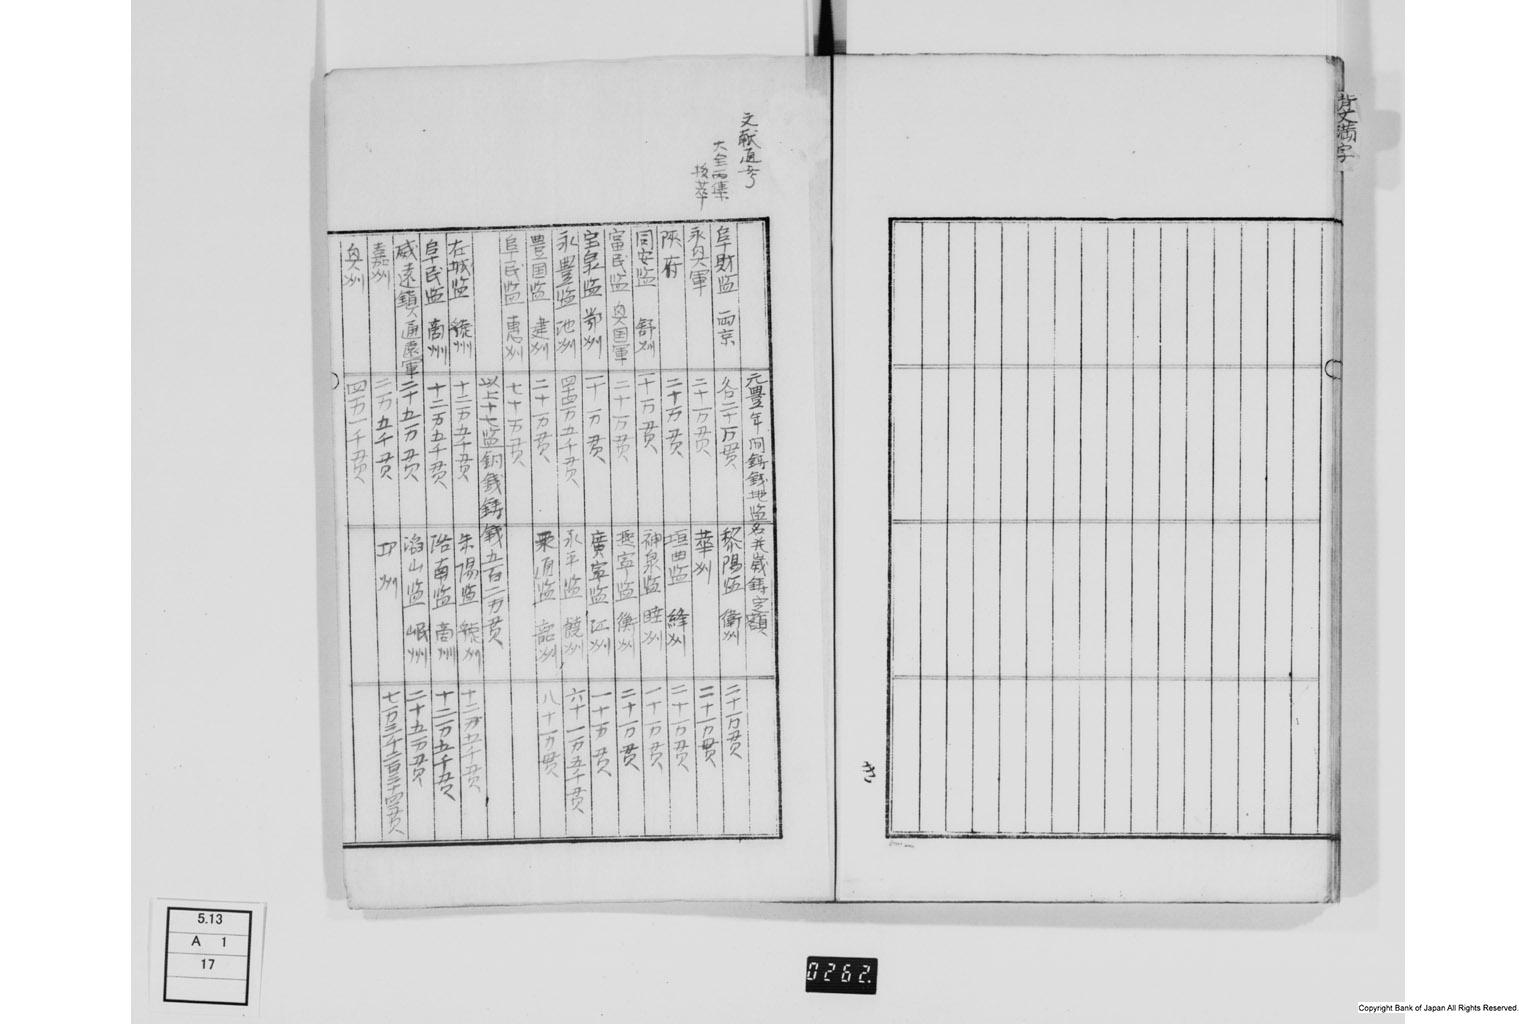 背文満字
き
文献通考
大全兩集
抜萃
元豊年間鋳銭地监名并歳鋳定額
阜財监 両京 各二十万貫 黎陽监 衛州 二十万貫
永奥軍 二十万貫 華州 二十万貫
陜府 二十万貫 垣曲监 絳州 二十万貫
同安监 舒州 一十万貫 神泉监 睦州 一十万貫
富民监 奥国軍 二十万貫 熈寧监 衡州 二十万貫
宝泉监 鄂州 一十万貫 廣寧监 江州 一十万貫
永豊监 池州 四十四万五千貫 永平监 饒州 六十一万五千貫
豊国监 建州 二十万貫 永通监 韶州 八十万貫
阜民监 惠州 七十万貫
以上十七监銅銭鋳銭五百二万貫
在城监 虢州 十二万五千貫 朱陽监 虢州 十二万五千貫
阜民监 商州 十二万五千貫 洛南监 商州 十二万五千貫
威遠鎮 通遠軍 二十五万貫 滔山监 岷州 二十五万貫
嘉州 二万五千貫 卭州 七万三千二百三十四貫
奥州 四万一千貫
5.13
A 1
17
0262.
Copyright Bank of Japan All Rights Reserved.